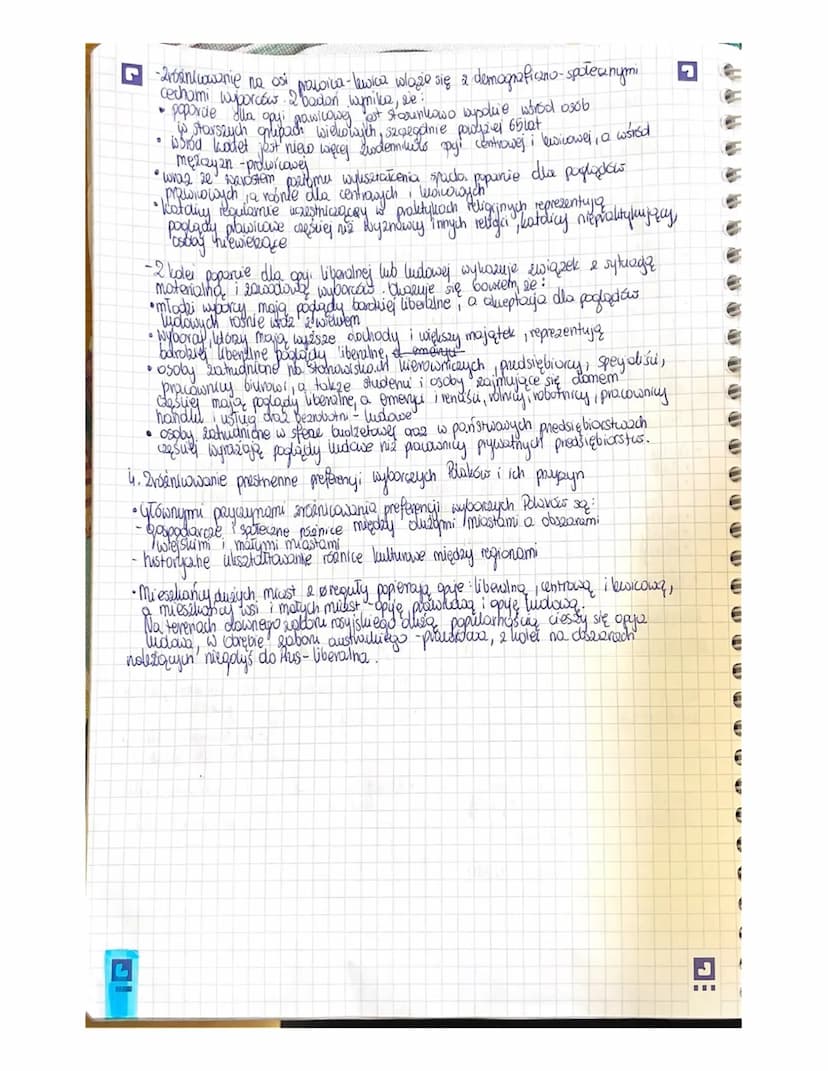 -Zróżnicowanie na osi prawica-lewica wiąże się z demograficzno-społecznymi
cechami wyborców. Z badań wynika, że:
• poparcie dla opcji prawicowej jest stosunkowo wysokie wśród osób
w starszych grupach wiekowych, szczególnie powyżej 65 lat
• wśród kobiet jest nieco więcej zwolenników opcji centrowej i lewicowej, a wśród
mężczyzn -prawicowej
• wraz ze wzrostem poziomu wykształcenia spada poparcie dla poglądów
prawicowych, a rośnie dla centrowych i lewicowych
• katolicy regularnie uczestniczący w praktykach religijnych reprezentują
poglądy prawicowe częściej niż wyznawcy innych religii, katolicy niepraktykujący,
osoby niewierzące
-Z kolei poparcie dla opcji liberalnej lub ludowej wykazuje związek z sytuacją
materialną i zawodową wyborców. Okazuje się bowiem, że:
• młodzi wyborcy mają poglądy bardziej liberalne, a akceptacja dla poglądów
ludowych rośnie wraz z wiekiem
• wyborcy, którzy mają wyższe dochody i większy majątek, reprezentują
bardziej liberalne poglądy liberalne, a emeryci
• osoby zatrudnione na stanowiskach kierowniczych, przedsiębiorcy, specjaliści,
pracownicy biurowi, a także studenci i osoby zajmujące się domem
częściej mają poglądy liberalne, a emeryci i renciści, rolnicy, robotnicy, pracownicy
handlu i usług oraz bezrobotni - ludowe
• osoby zatrudnione w sferze budżetowej oraz w państwowych przedsiębiorstwach
częściej wyrażają poglądy ludowe niż pracownicy prywatnych przedsiębiorstw.
4. Zróżnicowanie przestrzenne preferencji wyborczych Polaków i ich przyczyn
• Głównymi przyczynami zróżnicowania preferencji wyborczych Polaków są:
- gospodarcze i społeczne różnice między dużymi miastami a obszarami
wiejskimi i małymi miastami
- historycznie ukształtowane różnice kulturowe między regionami
• Mieszkańcy dużych miast z reguły popierają opcję: liberalną, centrową i lewicową,
a mieszkańcy wsi i małych miast -opcję prawicową i opcję ludową.
Na terenach dawnego zaboru rosyjskiego dużą popularnością cieszy się opcja
ludowa, w obrębie zaboru austriackiego -prawicowa, z kolei na obszarach
należących niegdyś do Prus-liberalna.